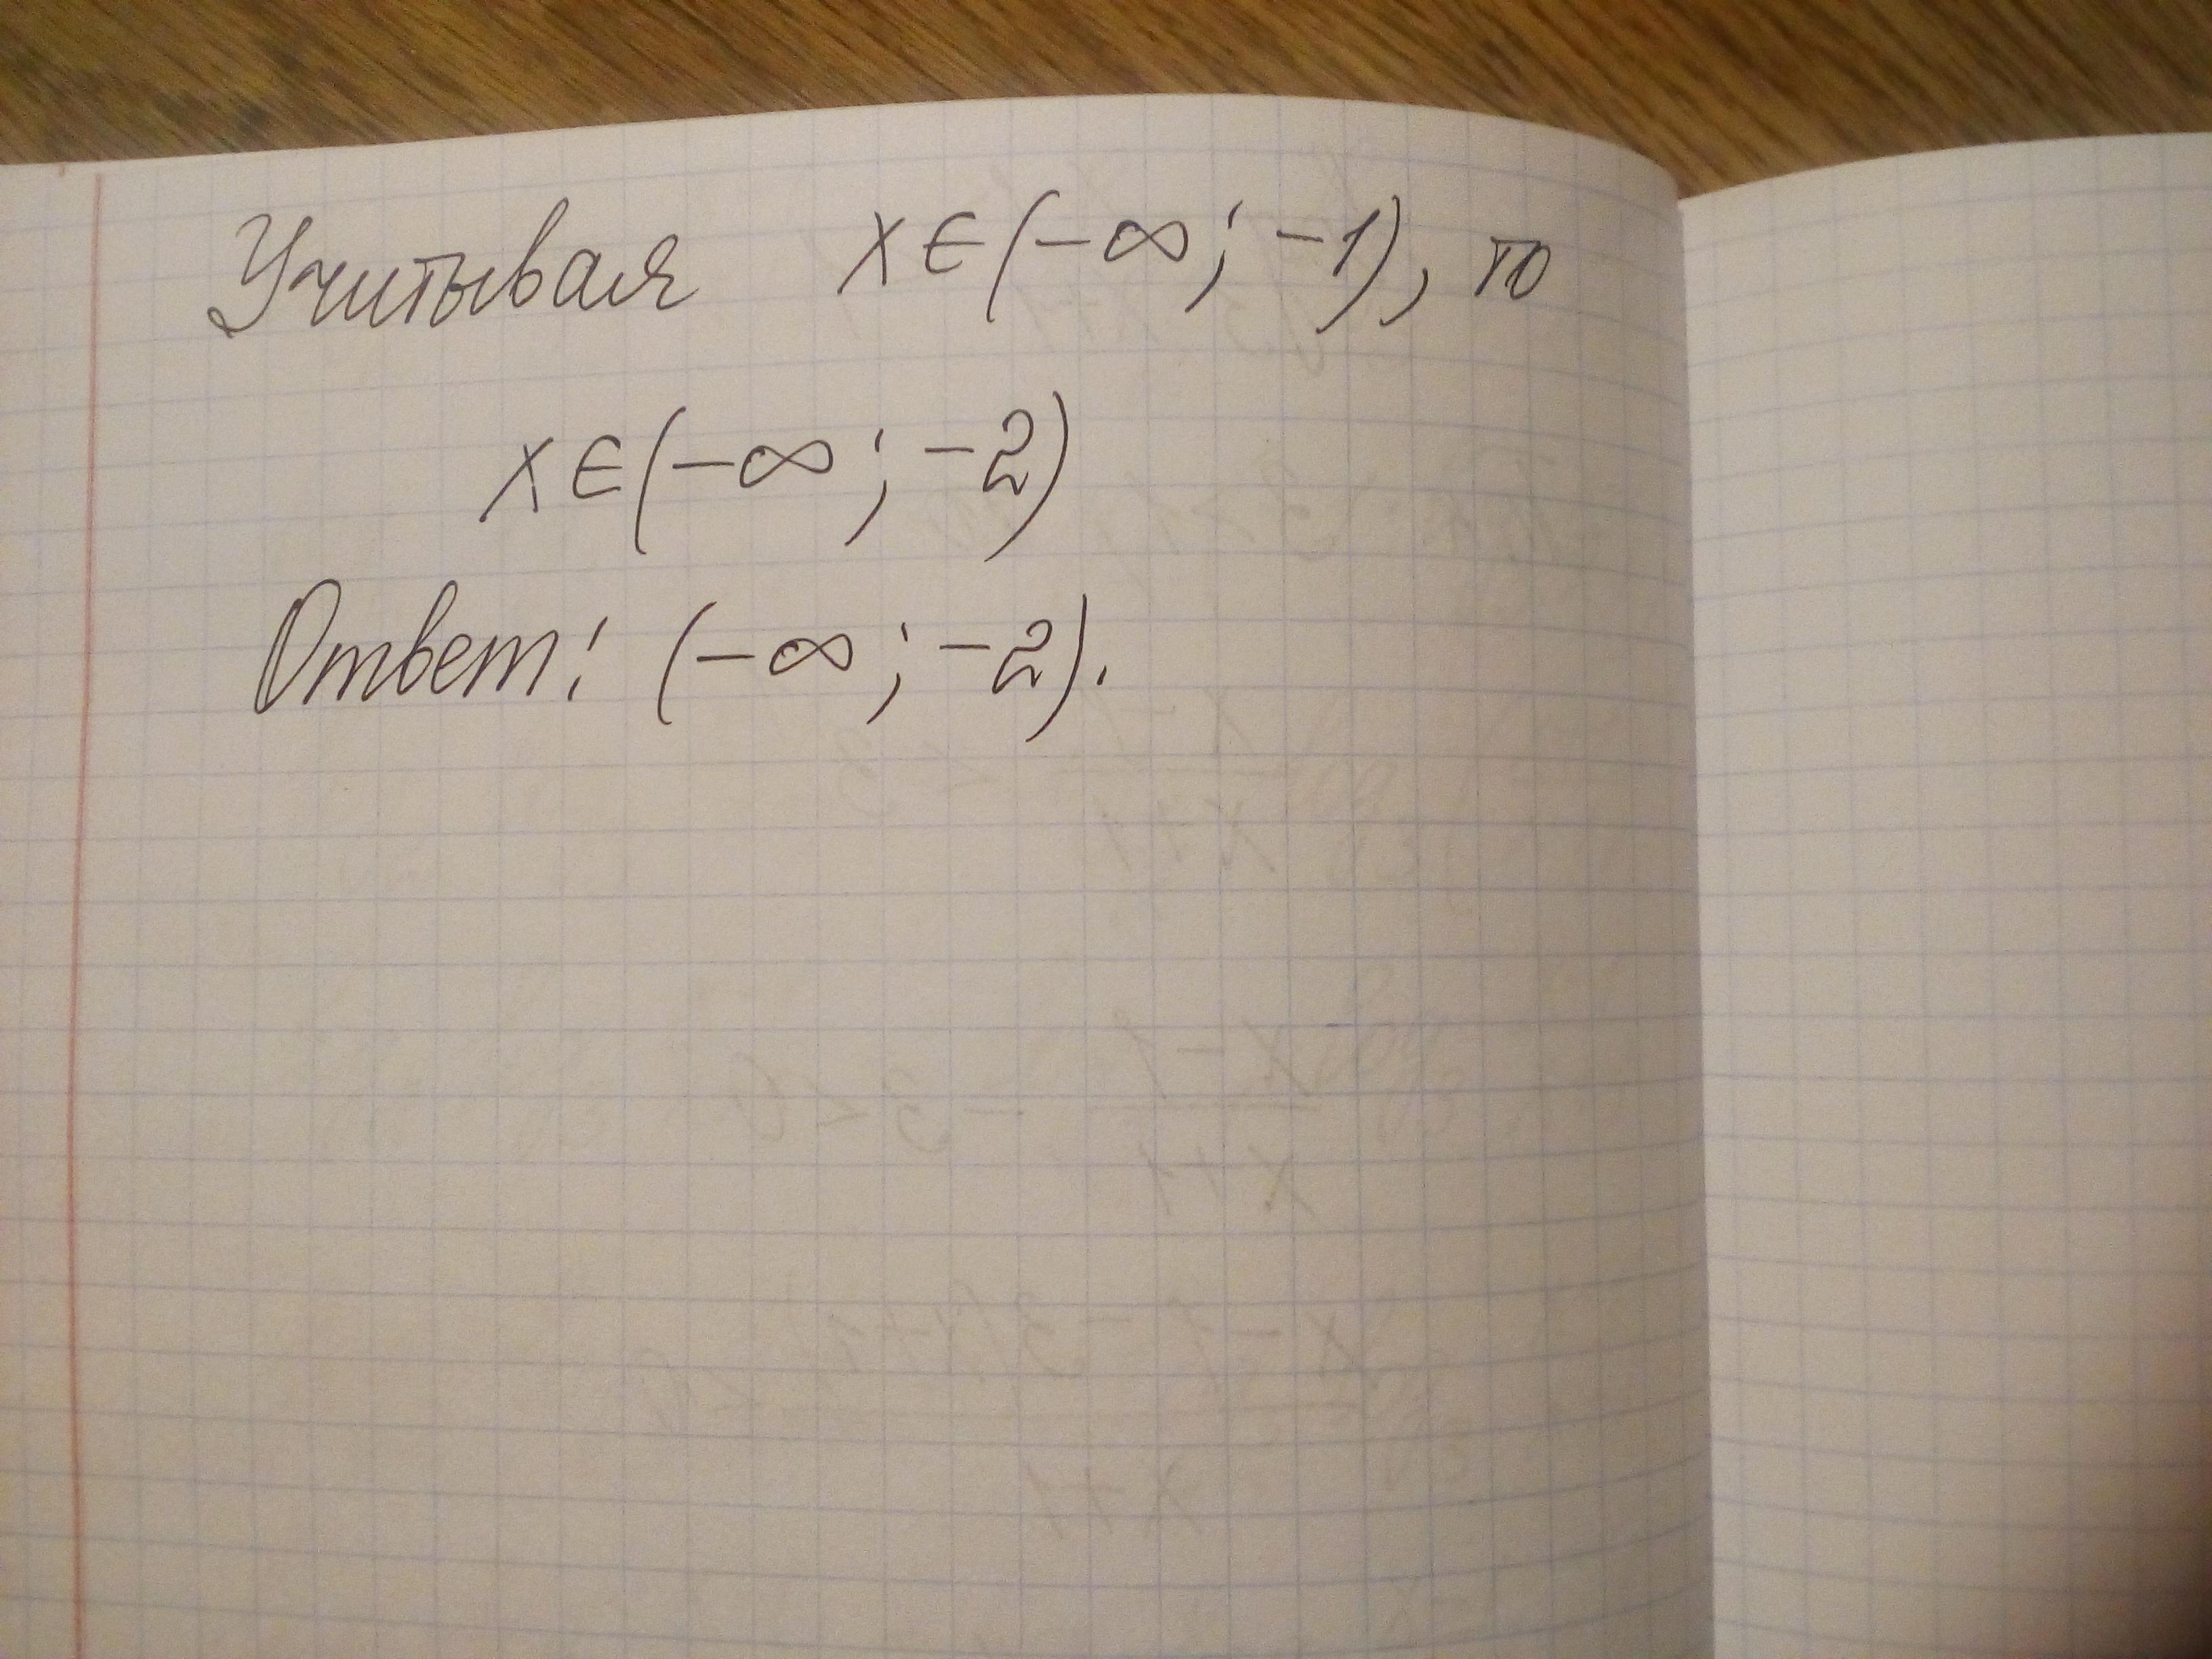 Учитывая x∈(-∞; -1), то
x∈(-∞; -2)
Ответ: (-∞; -2).